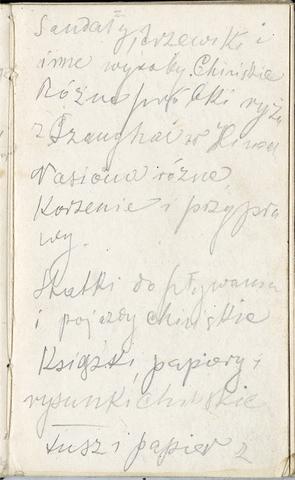 Sandały, trzewiki i
inne wyroby Chińskie
Różne próbki ryżu
z Szanghai w Hinsa
Nasiona różne
Korzenie i przypra
wy.
Statki do pływania
i pojazdy chińskie
Książki, papiery i
rysunki chińskie
Tusz i papier z